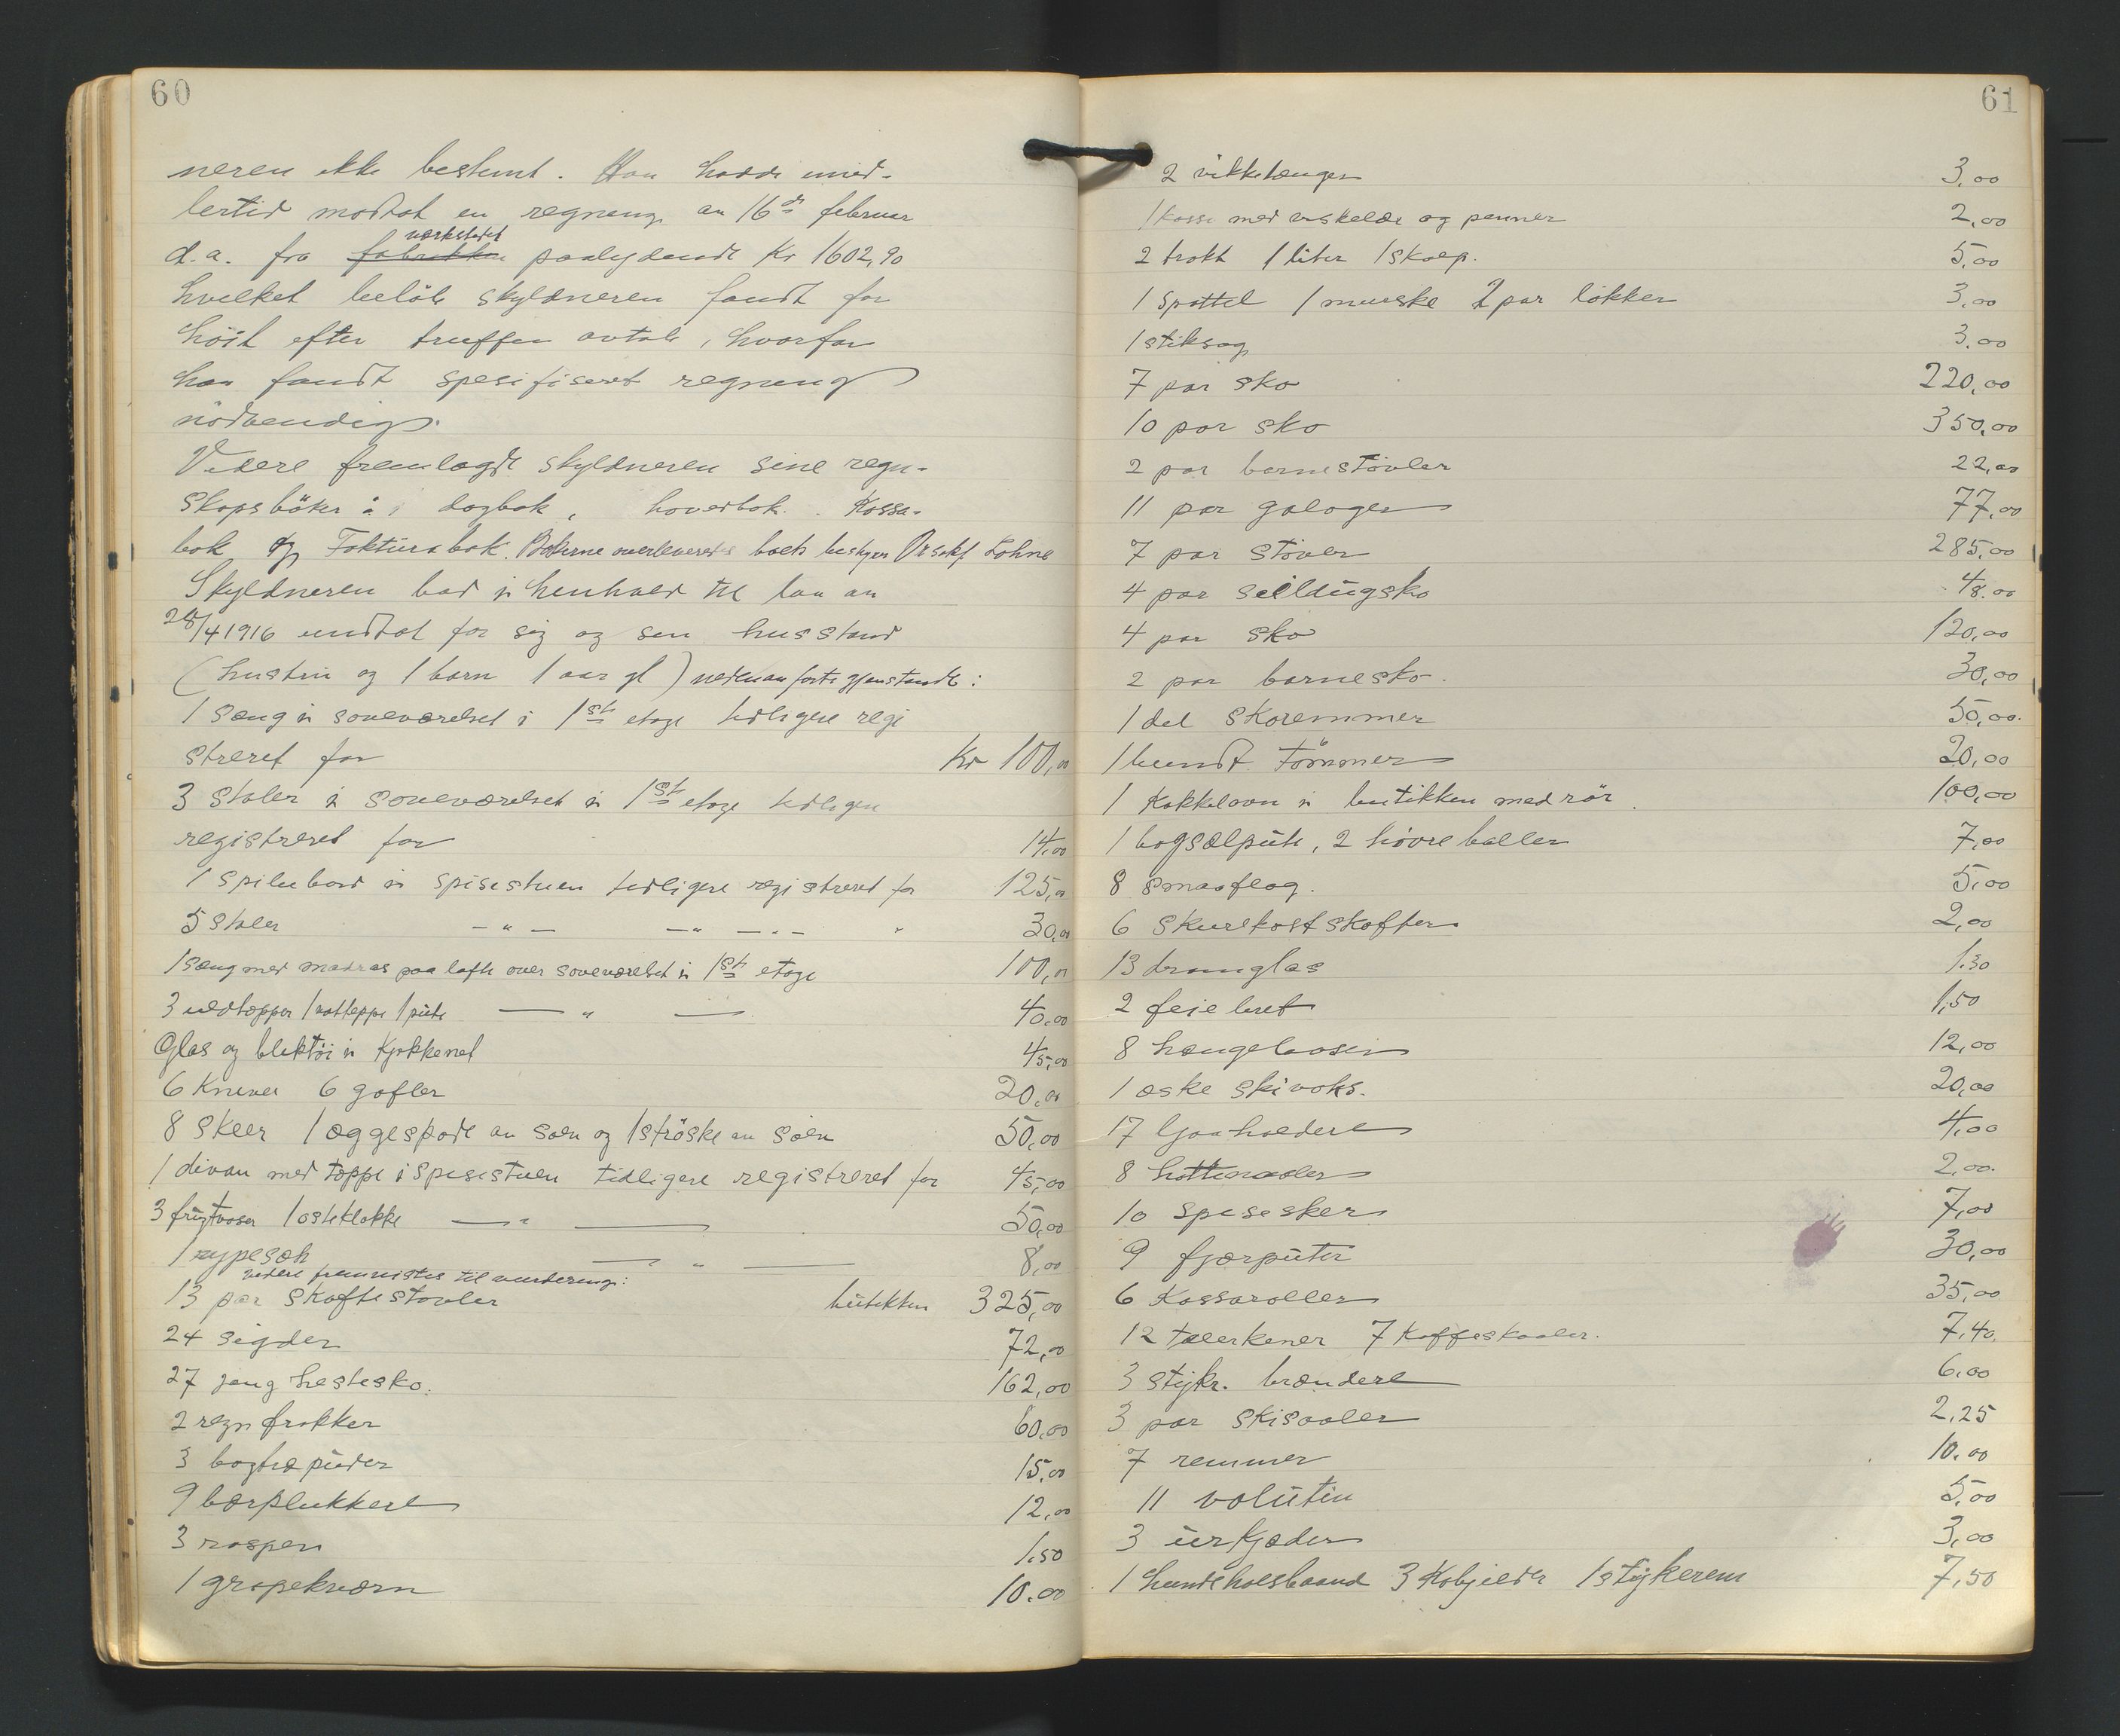 60
neren ikke bestemt. Han hadde imid-
lertid mottat en regning av 16de februar
værkstedet
d.a. fra fabrikken paalydende Kr 1602,90
hvilket beløb skyldneren fandt for
höit efter truffen avtale, hvorfor
han fandt spesifiseret regning
nödvendig.
Videre fremlagde skyldneren sine regn-
skapsböker: dagbok, hovedbok. Kassa-
bok og Fakturabok. Bökerne overleveredes boets bestyrer Lohne
Skyldneren bad i henhold til lov av
28/4 1916 undtat for sig og sin husstand
(hustru og 1 barn 1 aar gl) nedenanførte gjenstande:
1 seng i soveværelset i 1ste etage tidligere regi
streret for Kr 100,00
3 stoler i soveværelset i 1ste etage tidligere
registreret for 14,00
1 spisebord i spisestuen tidligere registreret for 125,00
5 stoler -"- -"- -"- " 30,00
1 seng med madras paa lofte over soveværelset i 1ste etage 100,00
3 uldtepper 1 vatteppe 1 pute — " — 40,00
Glas og bliktöi i Kjökkenet 45,00
6 Kniver 6 gafler 20,00
8 skeer 1 æggespade av sølv og 1 ströske av sölv 50,00
1 divan med teppe i spisestuen tidligere registreret for 45,00
3 frugtvaser 1 osteklokke — " — 50,00
1 rypesæt — " — 8,00
videre fremvistes til vurdering:
13 par skaftestøvler butikken 325,00
24 sigder 72,00
27 gang hestesko. 162,00
2 regnfrakker 60,00
3 bogtræpuder 15,00
9 bærplukkere 12,00
3 rasper 1,50
1 gropekværn 10.00
61
2 vikketænger 3,00
1 kasse med viskelær og penner 2,00
2 trakt 1 liter 1 skaap. 5,00
1 spattel 1 murske 2 par lökker 3,00
1 stiksag 3,00
7 par sko 220,00
10 par sko 350,00
2 par barnestövler 22,00
11 par galoger 77,00
7 par stövler 285,00
4 par seildugsko 48.00
4 par sko 120,00
2 par barnesko. 30,00
1 del skoremmer 50,00.
1 bundt tömmer 20,00
1 Kakkelovn i butikken med rör. 100,00
1 bogsælpute, 2 høvreballer 7,00
8 smaaflag. 5,00
6 skurekostskafter 2,00
13 dramglas 1.30
2 feiebret 1,50
8 hængelaaser 12,00
1 æske skivoks. 20,00
17 ljaaholdere 4,00
8 hattenaaler 2,00.
10 spiseskeer 7,00
9 fjærputer 30,00
6 Kasseroller 35,00
12 tallerkener 7 Kaffeskaaler. 7,40.
3 stykr. brændere 6,00
3 par skisaaler 2,25
7 remmer 10.00
11 volutin 5,00
3 urkjæder 3,00
1 hundehalsbaand 3 Kobjelder 1 strykerem 7,50